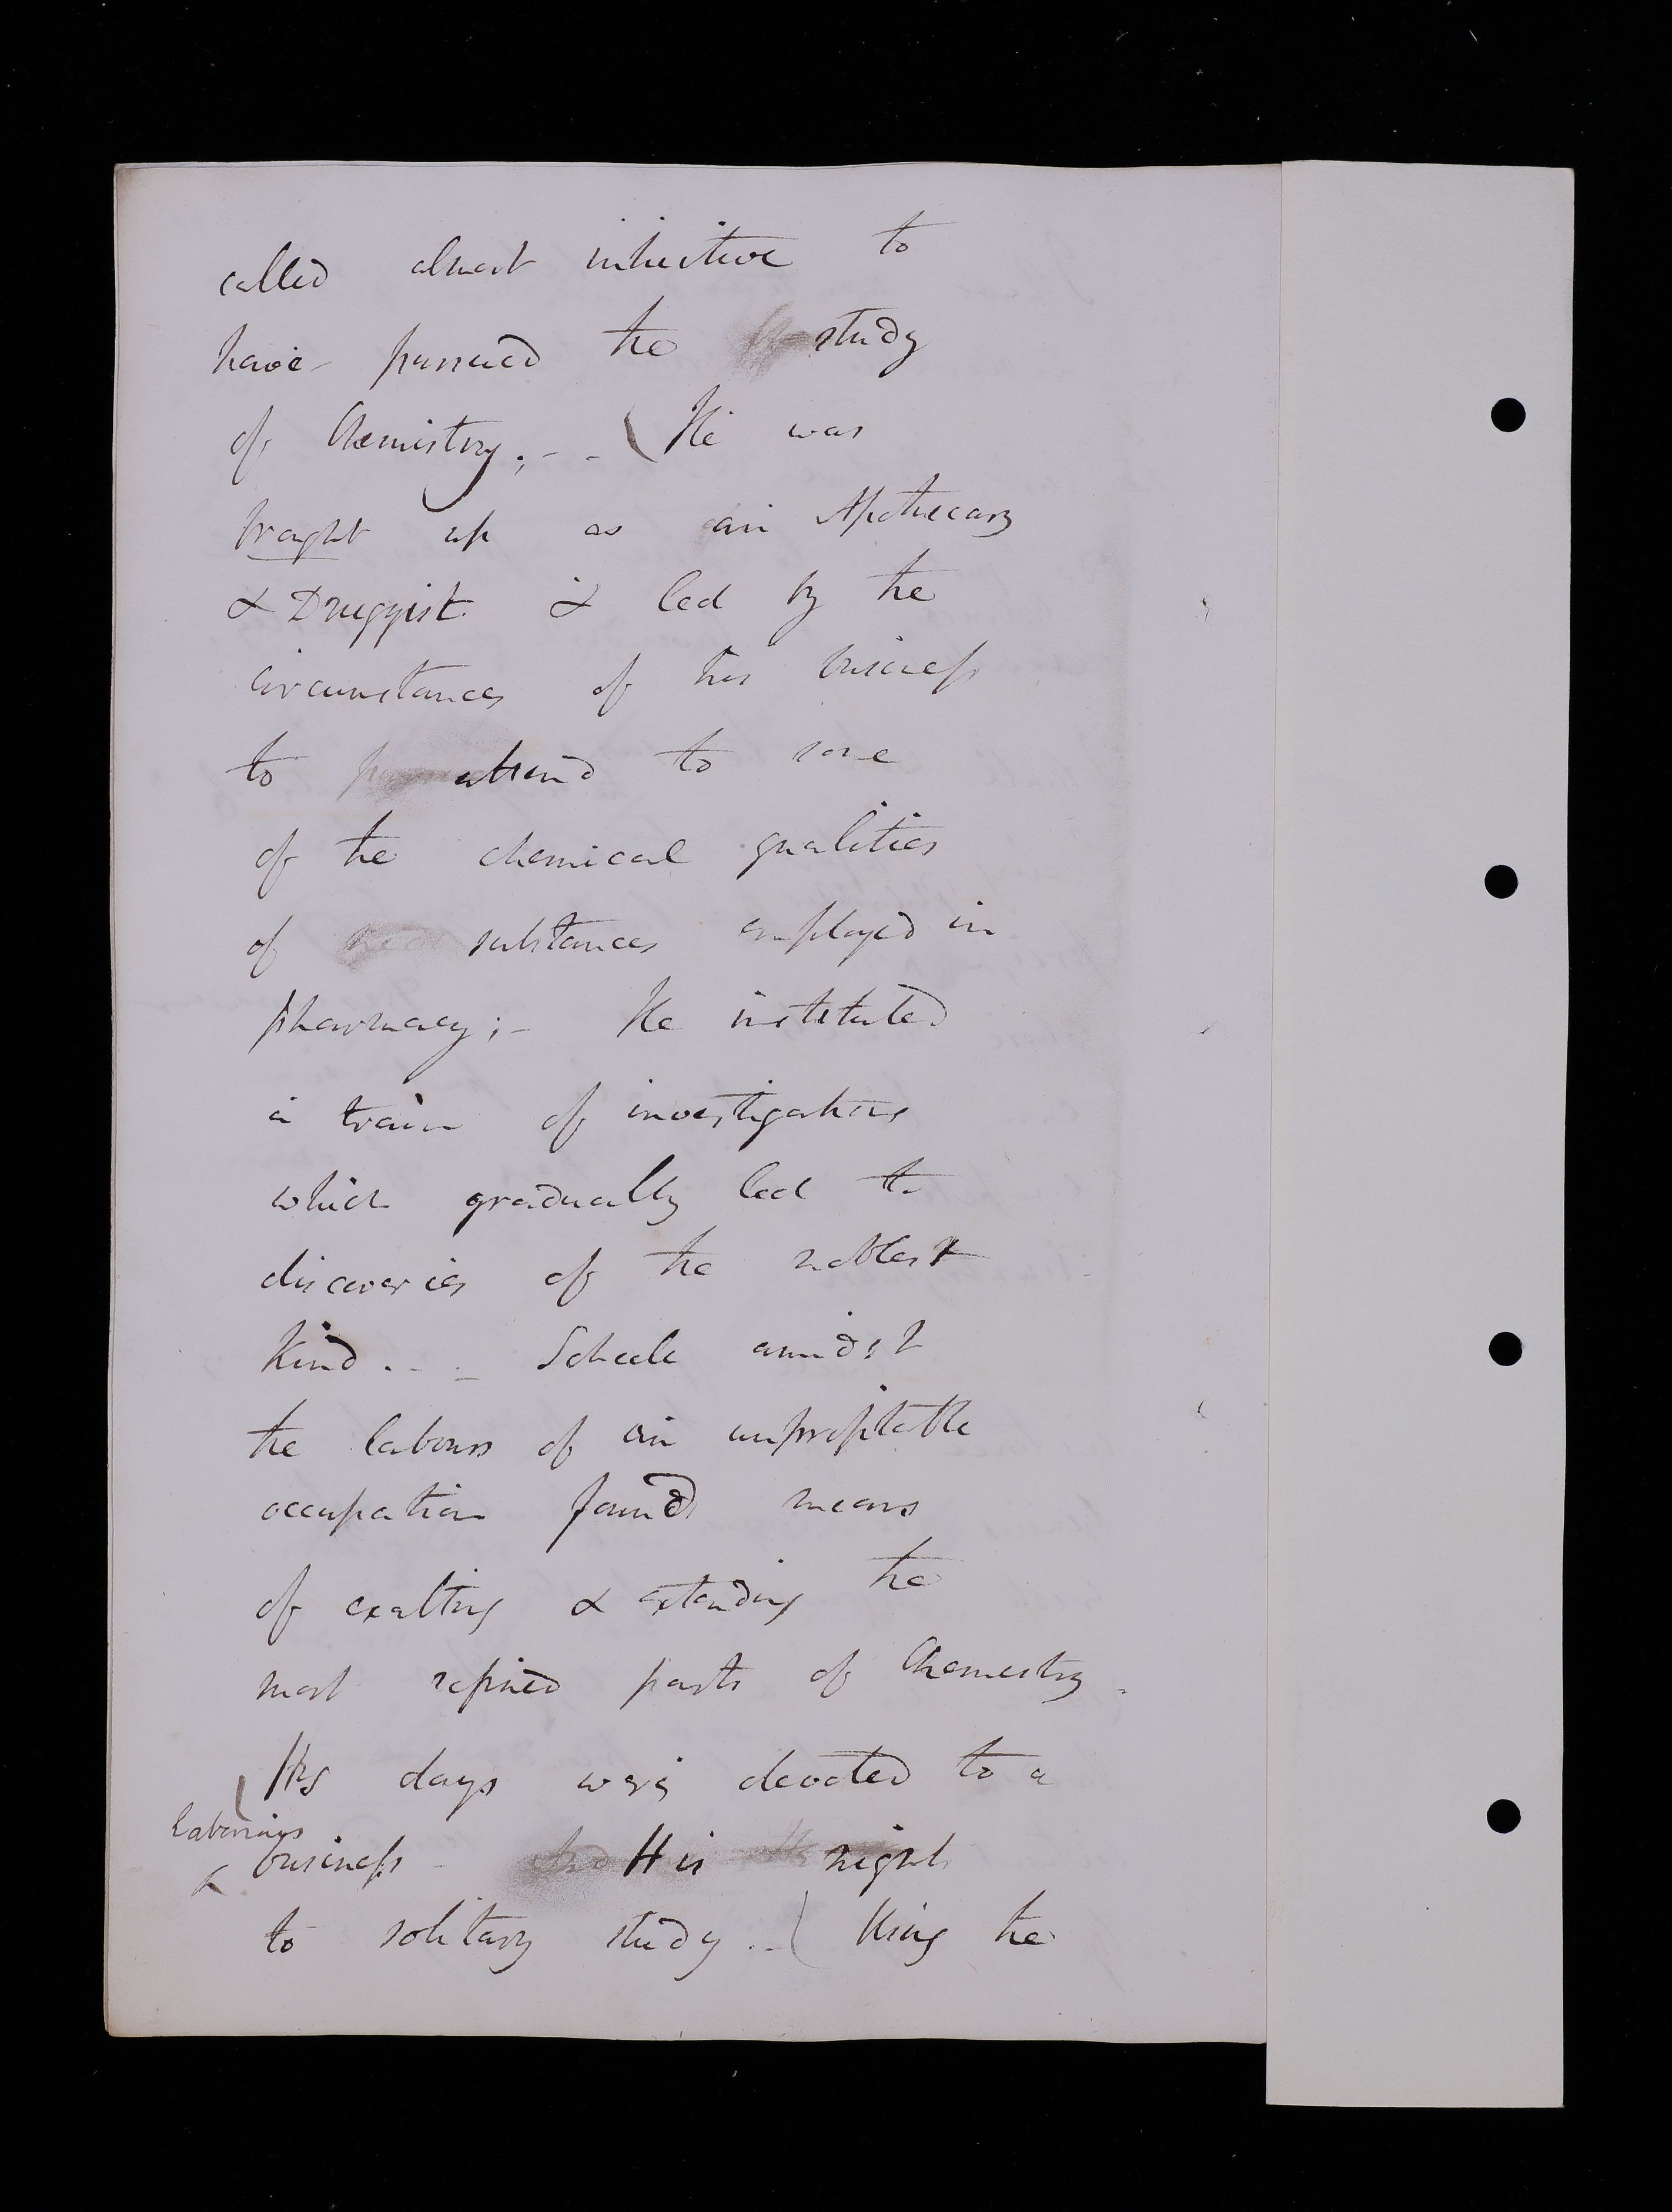 called almost intuitive to
have pursued the study
of Chemistry;- - (He was
braght up as an Apothecary
& Druggist & led by the
circumstances of his business
to attend to some
of the chemical qualities
of substances employed in
pharmacy;- He instituted
a train of investigations
which gradually led to
discoveries of the noblest
kind. - - Scheele amidst
the labours of an unprofitable
occupation found means
of exalting & extending the
most refined parts of Chemistry.
(His days were devoted to a
laborious
business - His nights
to solitary study..) Using the